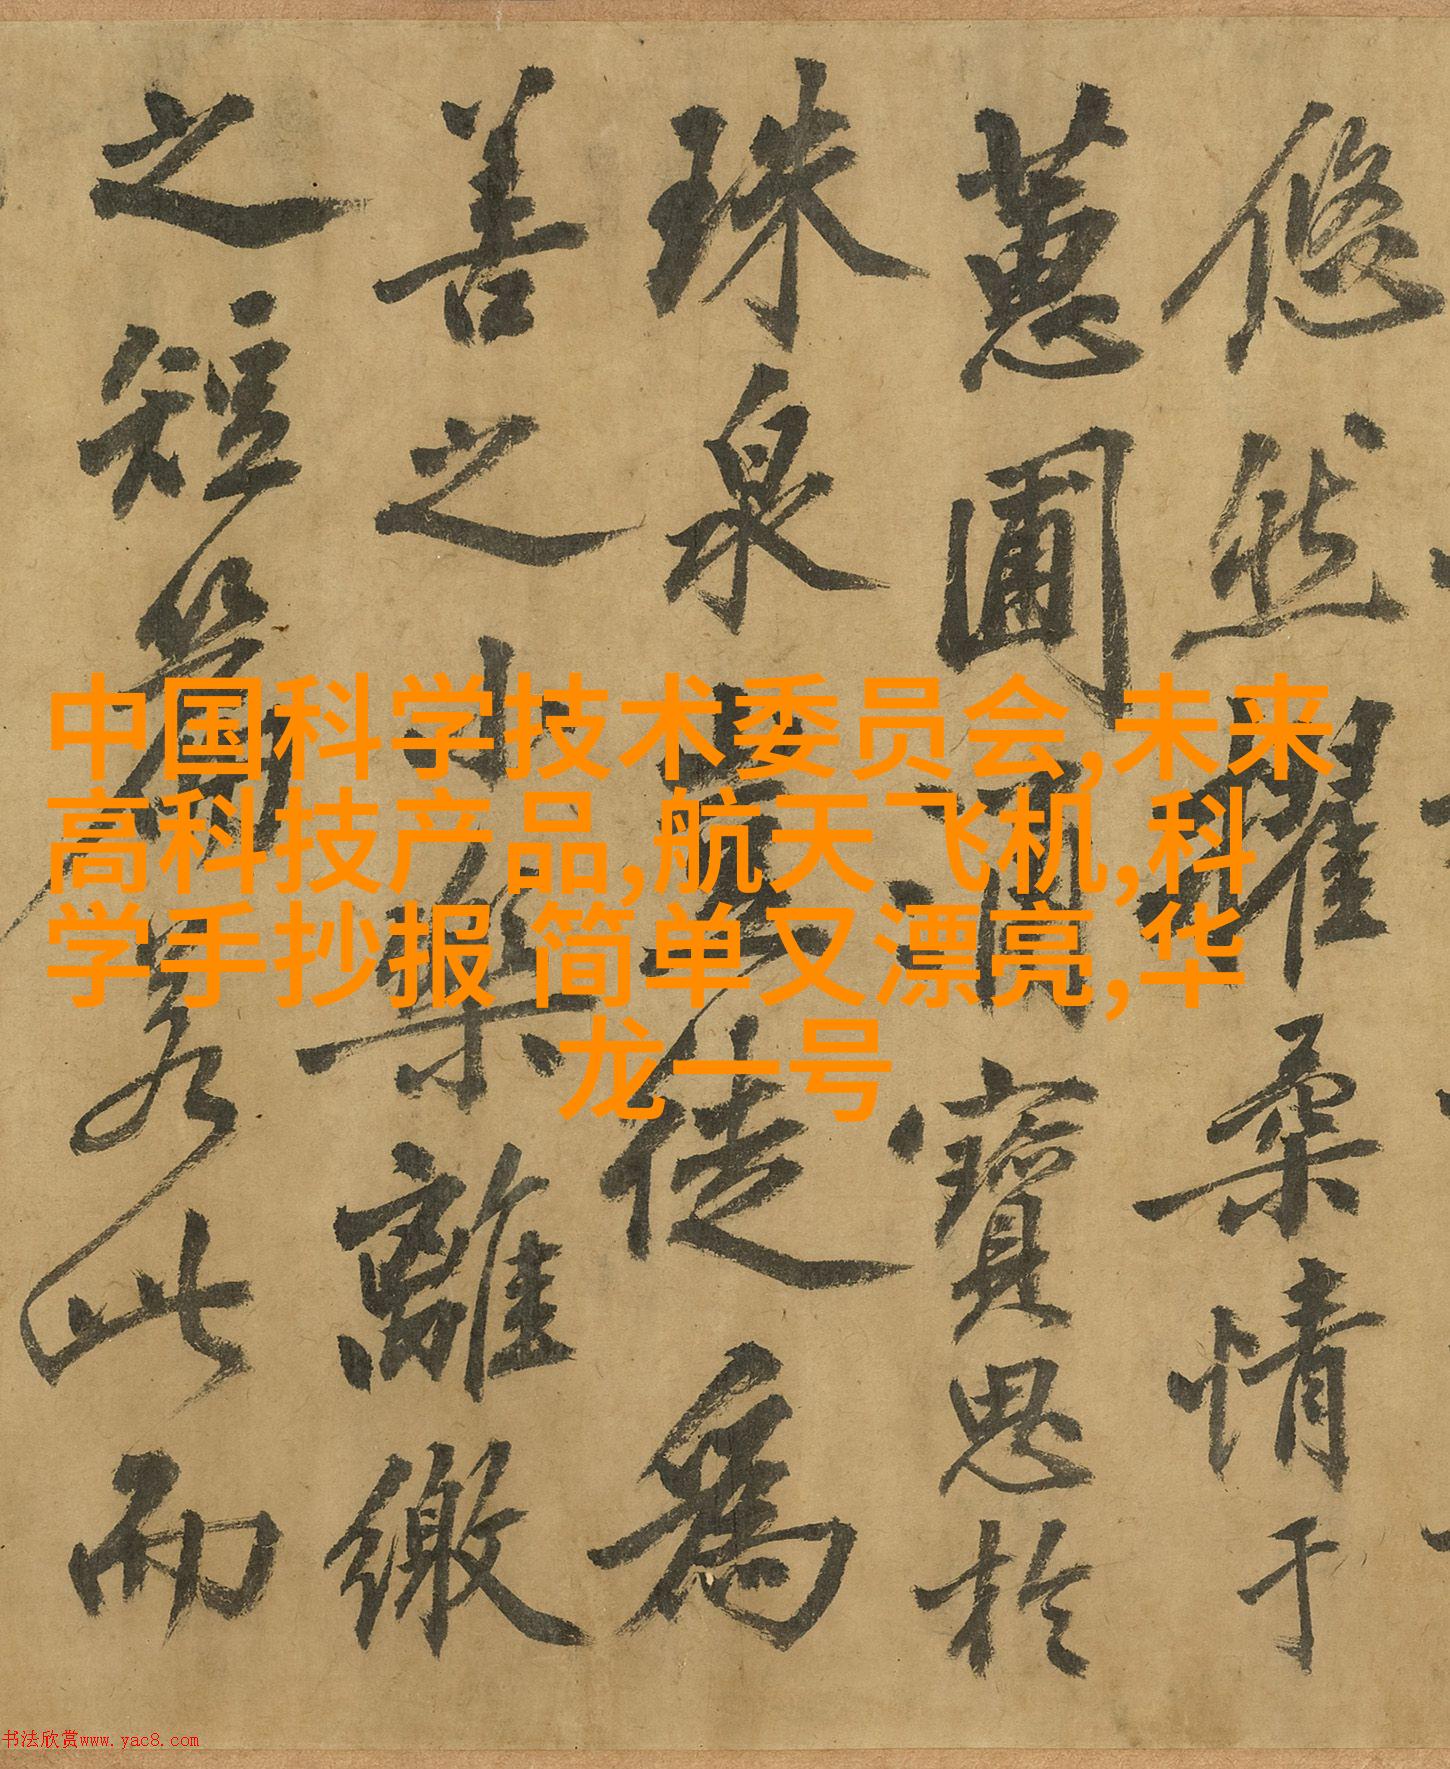 悠然擢桑情于
蕙圃涌寶思於
珠泉豈徒為
善之小樂離繳
之短篇若此而
中国科学技术委员会,未来
高科技产品,航天飞机,科
学手抄报 简单又漂亮,华
龙一号
书法欣赏www.yac8.com